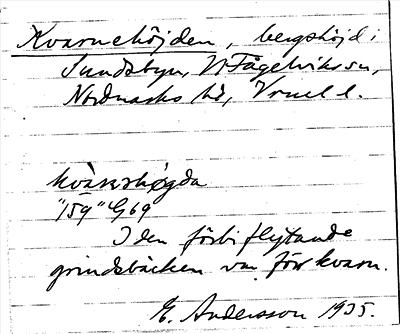 Kvarnehöjden, bergshöjd i
Sundsbyn, V Fågelviks sn,
Nordmarks hd, Vrml l.
kvàɳhøgda
"/59" G69
I den förbi flytande
grindsbäcken var förr kvarn.
E. Andersson 1935.